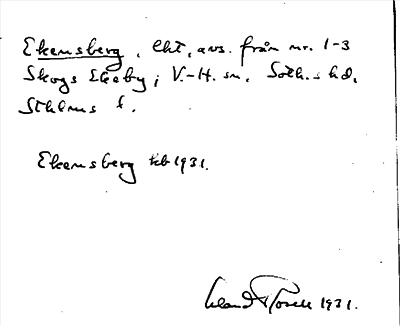 Ekensberg, lht, avs. från nr. 1-3
Skogs Ekeby i V.-H. sn. Soth.s hd.
Sthlms l.
Ekensberg tkb 1931.
1931.